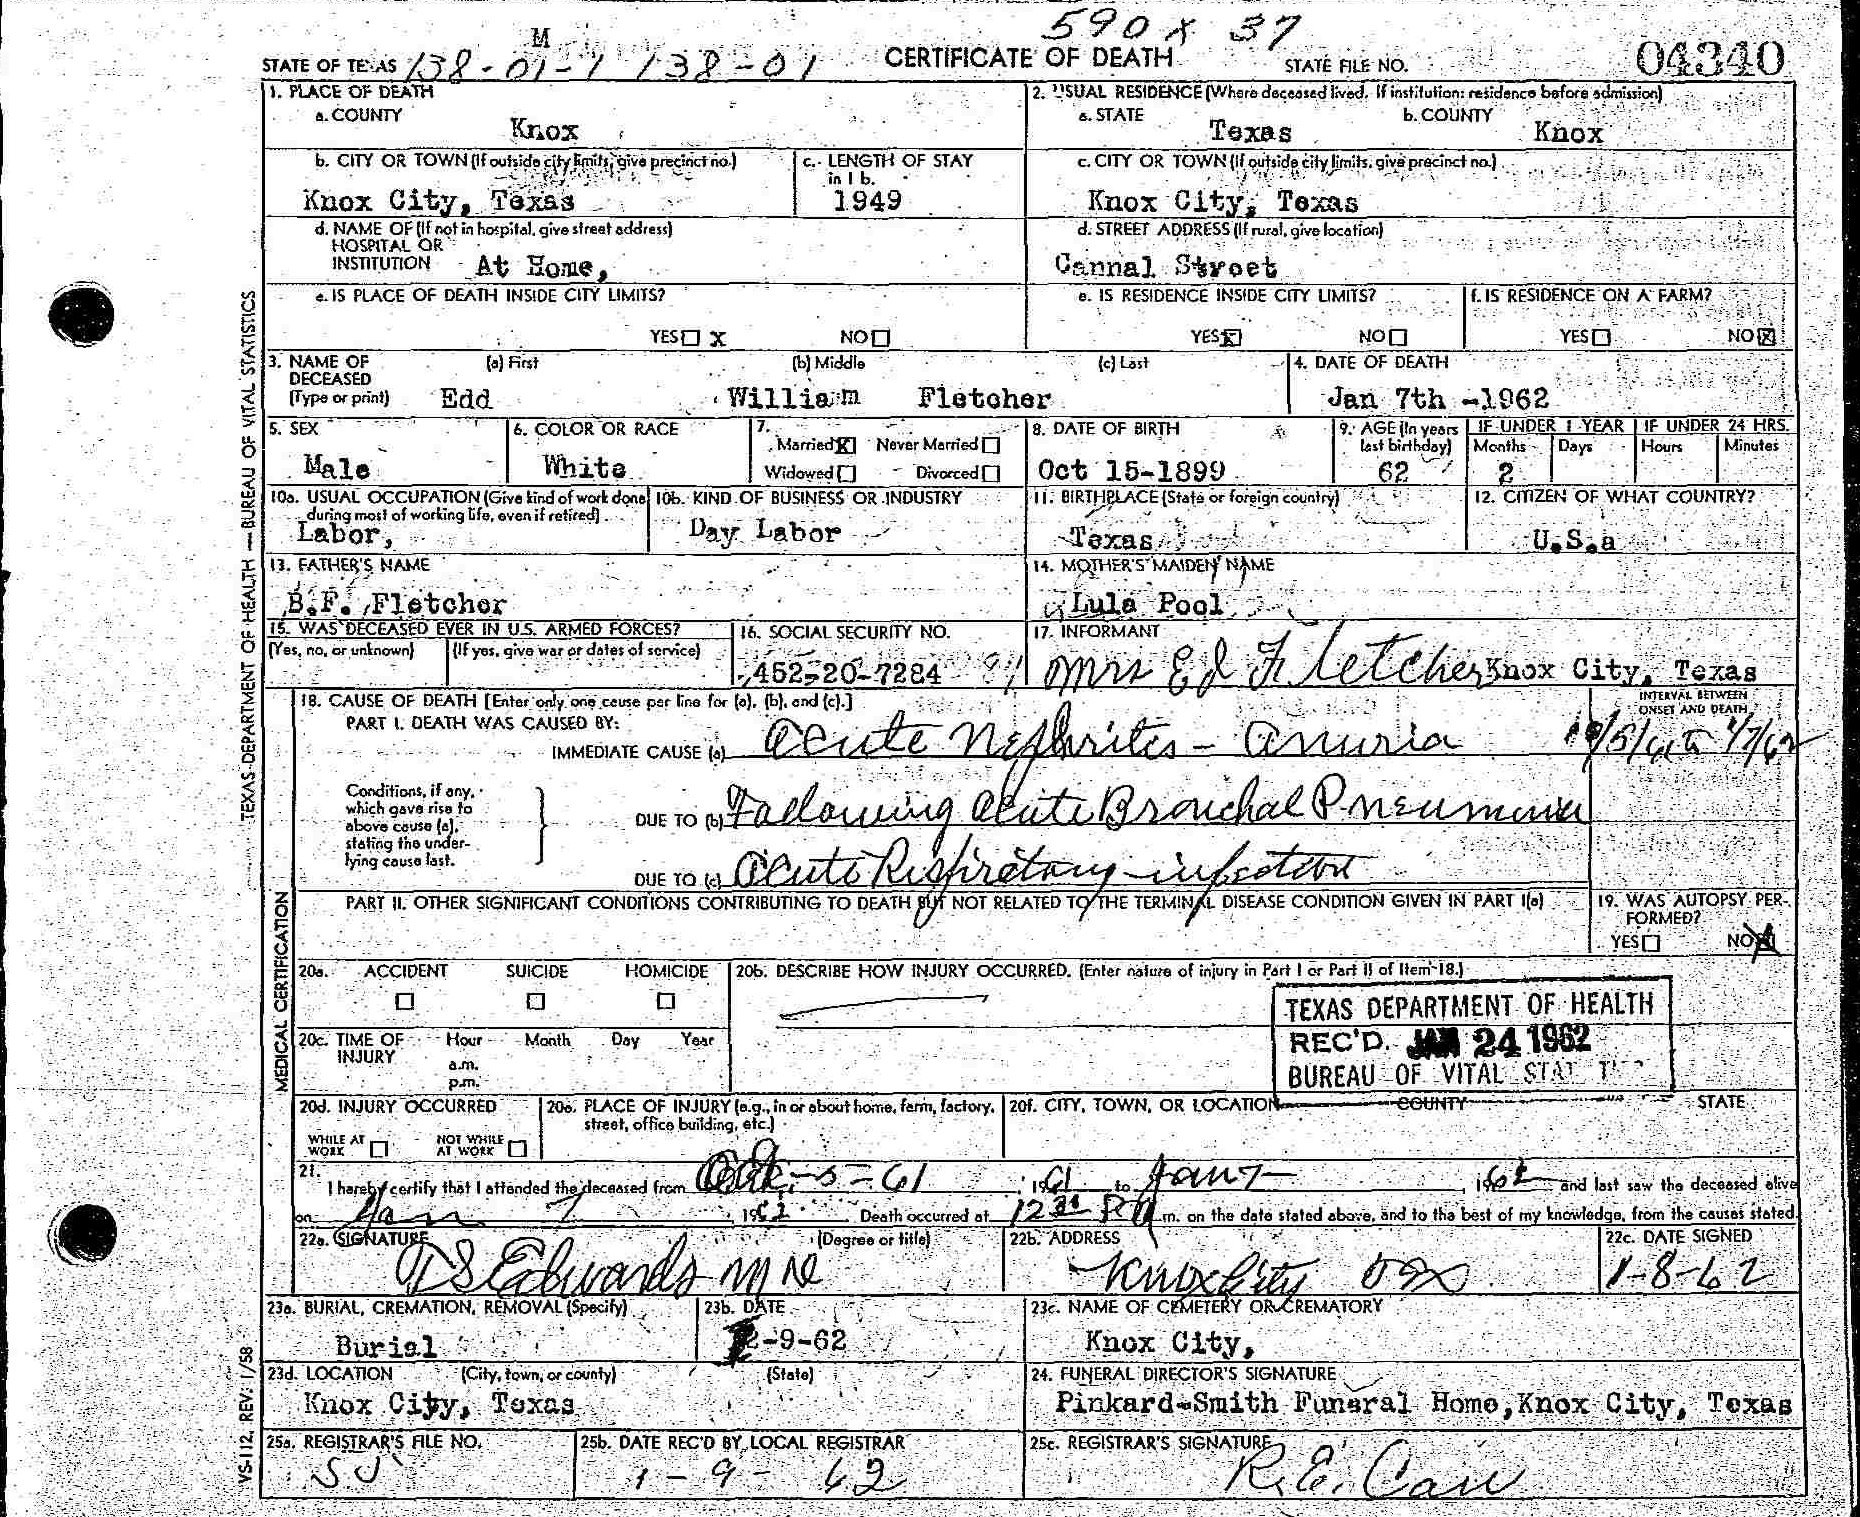 590 x 37
M
STATE OF TEXAS 138-01-1 138-01 CERTIFICATE OF DEATH STATE FILE NO. 04340
TEXAS DEPARTMENT OF HEALTH — BUREAU OF VITAL STATISTICS
1. PLACE OF DEATH
a. COUNTY
Knox
2. USUAL RESIDENCE (Where deceased lived. If institution: residence before admission)
a. STATE b. COUNTY
Texas Knox
b. CITY OR TOWN (If outside city limits, give precinct no.)
Knox City, Texas
c. LENGTH OF STAY
in 1 b.
1949
c. CITY OR TOWN (If outside city limits, give precinct no.)
Knox City, Texas
d. NAME OF (If not in hospital, give street address)
HOSPITAL OR
INSTITUTION At Home,
d. STREET ADDRESS (If rural, give location)
Cannal Street
e. IS PLACE OF DEATH INSIDE CITY LIMITS?
YES X NO
e. IS RESIDENCE INSIDE CITY LIMITS?
YES X NO
f. IS RESIDENCE ON A FARM?
YES NO X
3. NAME OF (a) First (b) Middle (c) Last
DECEASED
(Type or print) Edd William Fletcher
4. DATE OF DEATH
Jan 7th -1962
5. SEX
Male
6. COLOR OR RACE
White
7.
Married X Never Married
Widowed Divorced
8. DATE OF BIRTH
Oct 15-1899
9. AGE (In years
last birthday)
62
IF UNDER 1 YEAR
Months Days
2
IF UNDER 24 HRS.
Hours Minutes
10a. USUAL OCCUPATION (Give kind of work done
during most of working life, even if retired)
Labor,
10b. KIND OF BUSINESS OR INDUSTRY
Day Labor
11. BIRTHPLACE (State or foreign country)
Texas
12. CITIZEN OF WHAT COUNTRY?
U.S.a
13. FATHER'S NAME
B.F. Fletcher
14. MOTHER'S MAIDEN NAME
Lula Pool
15. WAS DECEASED EVER IN U.S. ARMED FORCES?
(Yes, no, or unknown) (If yes, give war or dates of service)
16. SOCIAL SECURITY NO.
452-20-7284
17. INFORMANT
Mrs Ed Fletcher Knox City, Texas
MEDICAL CERTIFICATION
18. CAUSE OF DEATH [Enter only one cause per line for (a), (b), and (c).]
PART I. DEATH WAS CAUSED BY:
INTERVAL BETWEEN
ONSET AND DEATH
IMMEDIATE CAUSE (a) Acute Nephritis - Anuria to 1/7/62
Conditions, if any,
which gave rise to
above cause (a),
stating the under-
lying cause last.
DUE TO (b) Following Acute Bronchal Pneumonia
DUE TO (c) Acute Respiretory infection
PART II. OTHER SIGNIFICANT CONDITIONS CONTRIBUTING TO DEATH BUT NOT RELATED TO THE TERMINAL DISEASE CONDITION GIVEN IN PART I(a)
19. WAS AUTOPSY PER-
FORMED?
YES NO X
20a. ACCIDENT SUICIDE HOMICIDE
20b. DESCRIBE HOW INJURY OCCURRED. (Enter nature of injury in Part I or Part II of Item 18.)
TEXAS DEPARTMENT OF HEALTH
REC'D. JAN 24 1962
BUREAU OF VITAL STAT
20c. TIME OF Hour Month Day Year
INJURY
a.m.
p.m.
20d. INJURY OCCURRED
WHILE AT WORK NOT WHILE AT WORK
20e. PLACE OF INJURY (e.g., in or about home, farm, factory,
street, office building, etc.)
20f. CITY, TOWN, OR LOCATION COUNTY STATE
21.
I hereby certify that I attended the deceased from -5-61, 1961 to Jan 7, 1962 and last saw the deceased alive
on Jan 7, 1962. Death occurred at 12 30 P m. on the date stated above, and to the best of my knowledge, from the causes stated.
22a. SIGNATURE (Degree or title)
TS Edwards MD
22b. ADDRESS
Knox City
22c. DATE SIGNED
1-8-62
23a. BURIAL, CREMATION, REMOVAL (Specify)
Burial
23b. DATE
-9-62
23c. NAME OF CEMETERY OR CREMATORY
Knox City,
23d. LOCATION (City, town, or county) (State)
Knox City, Texas
24. FUNERAL DIRECTOR'S SIGNATURE
Pinkard-Smith Funeral Home, Knox City, Texas
25a. REGISTRAR'S FILE NO.
25b. DATE REC'D BY LOCAL REGISTRAR
1-9-62
25c. REGISTRAR'S SIGNATURE
R.E. Carr
VS-112, REV. 1/58